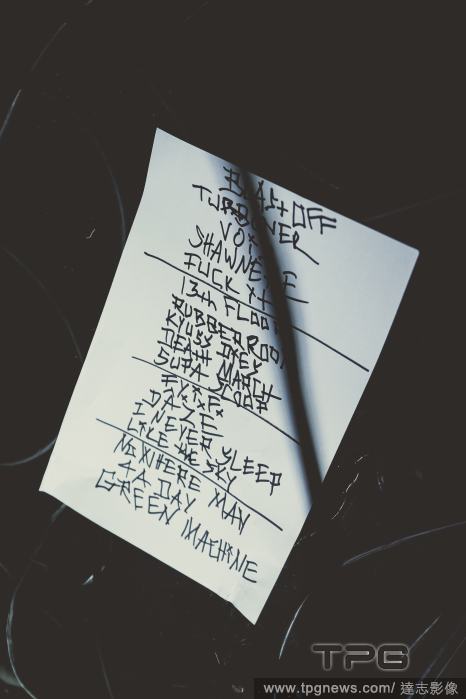 BLAST OFF
TURBONER
VOX
SHAWNETTE
FUCK Y+
13th FLOOR
RUBBERROOM
KYUSS DYES
DEATH MARCH
SUPA SCOOP
F.Y.I.F.
DAZE
I NEVER SLEEP
LIKE THE SKY
NOWHERE MAN
4A DAY
GREEN MACHINE
TPG
www.tpgnews.com/達志影像